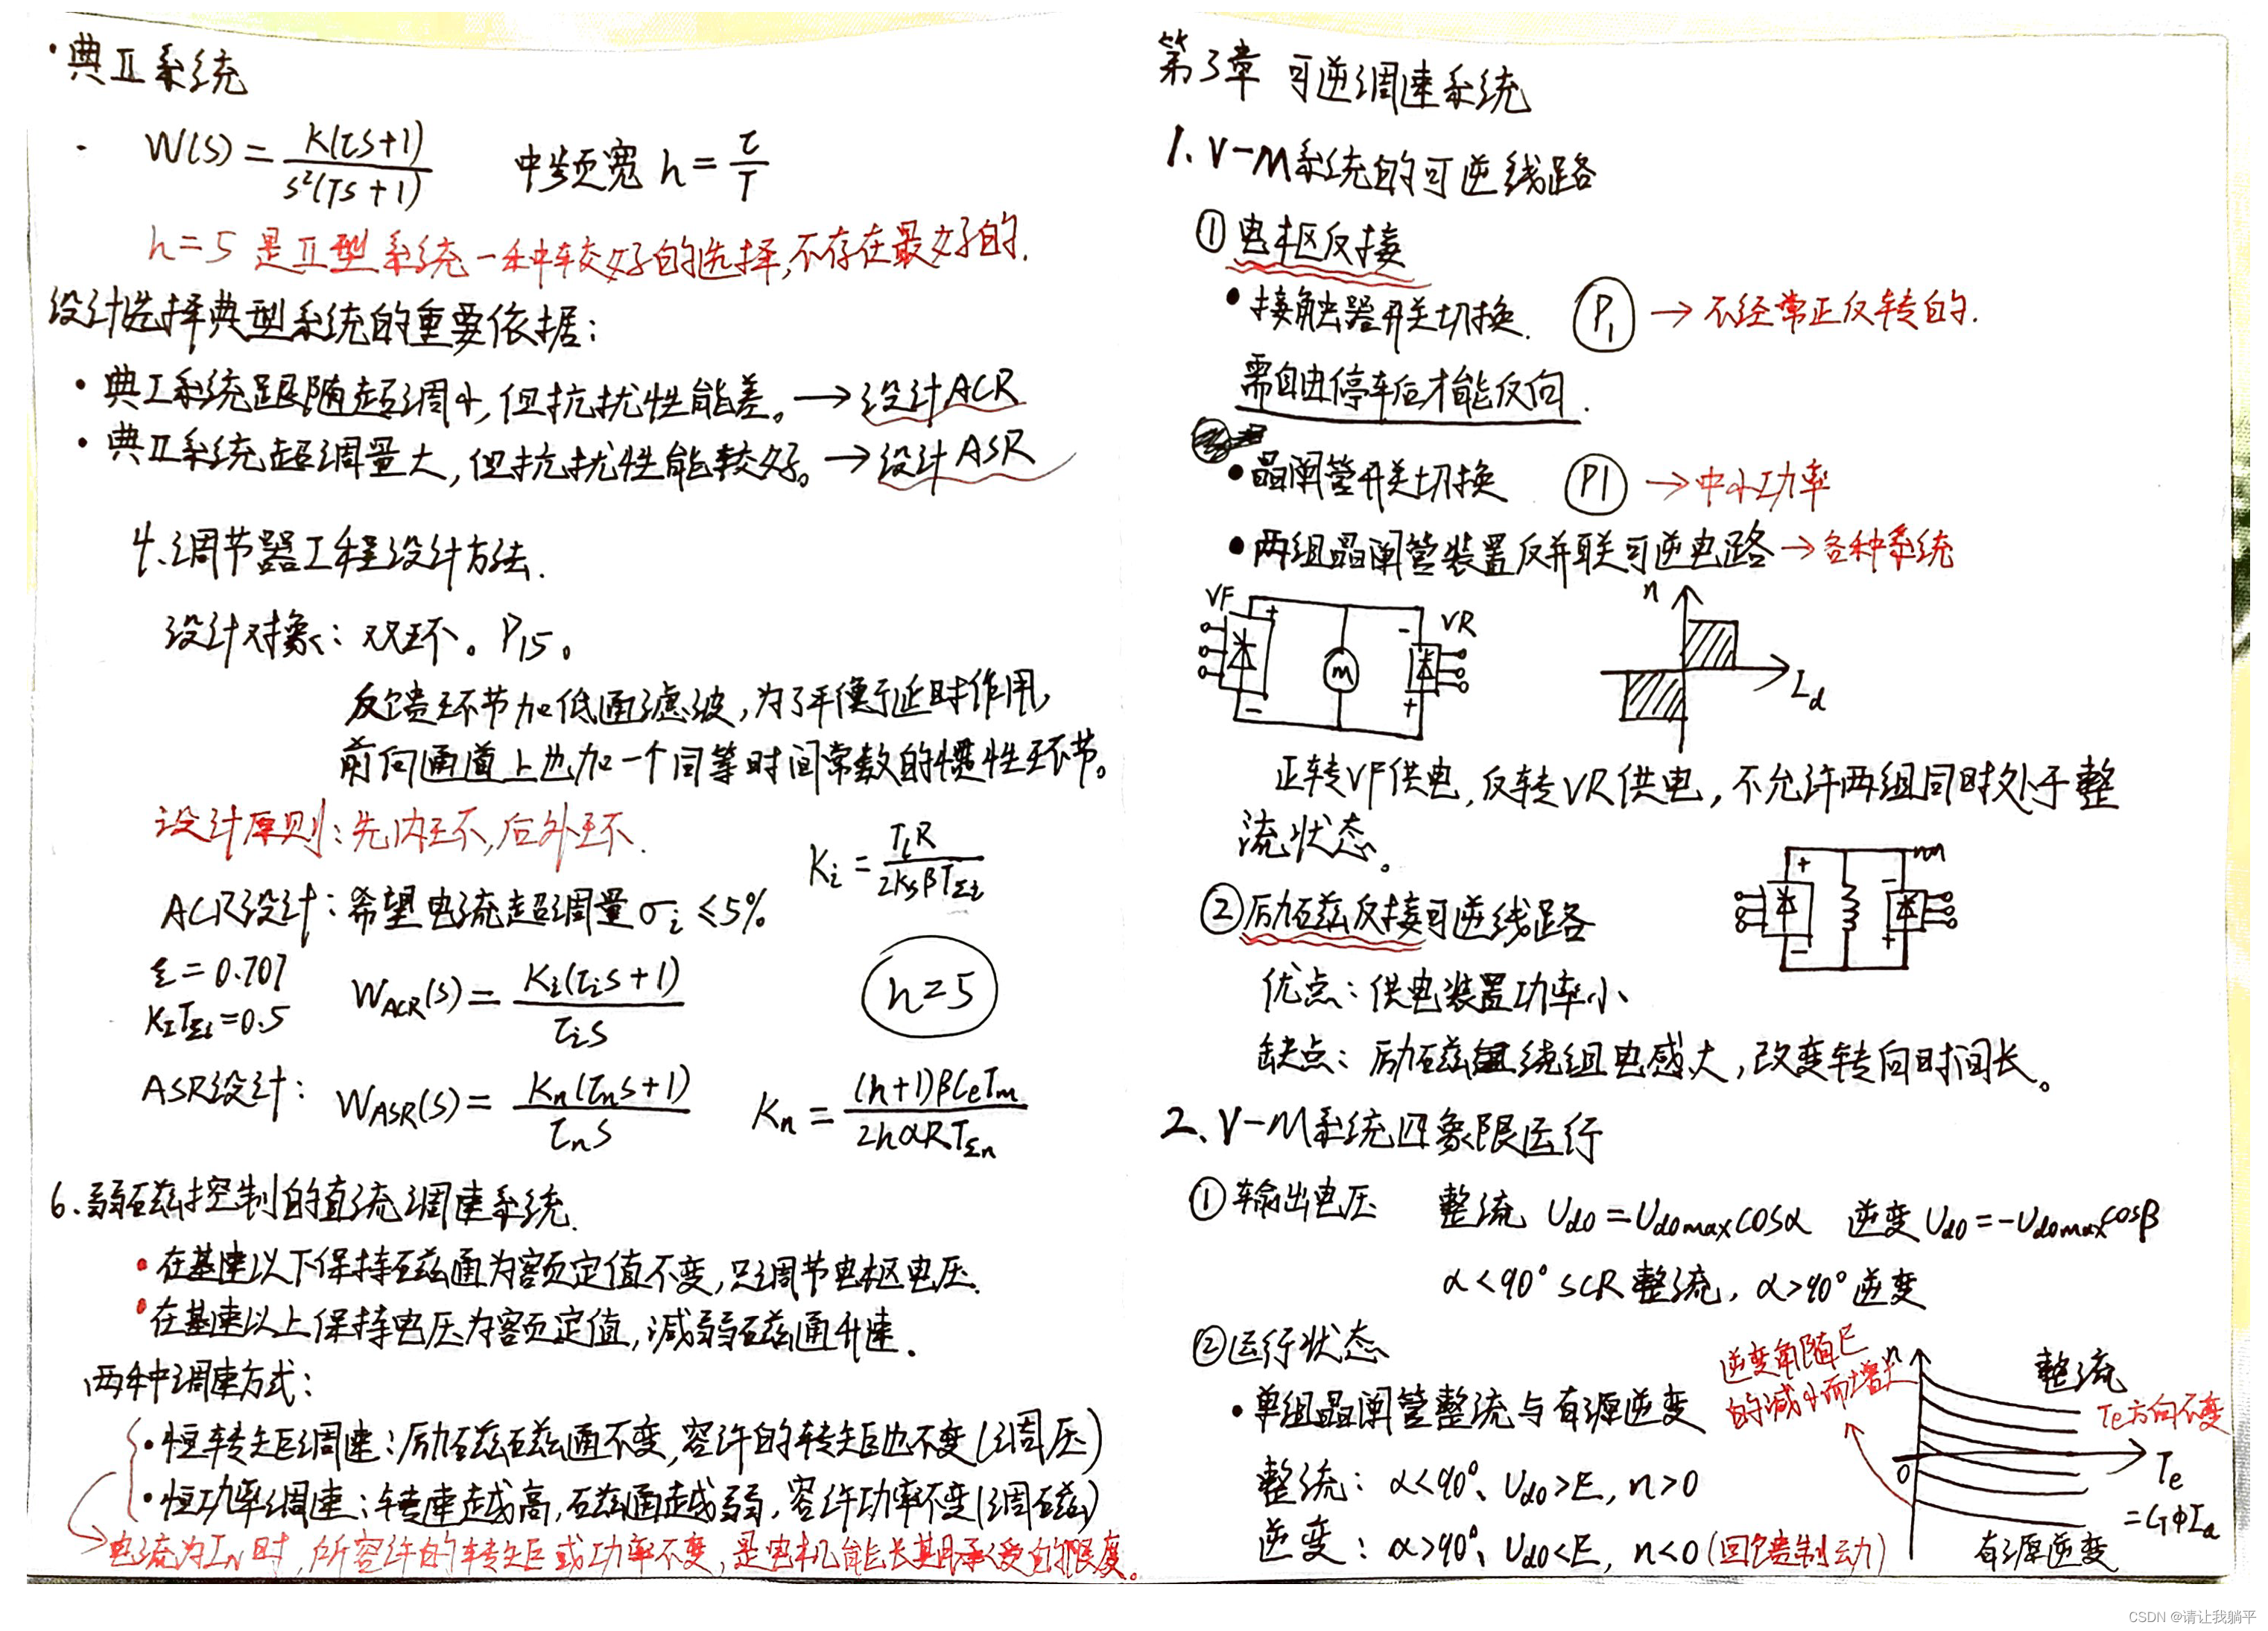 ·典Ⅱ系统
· W(s) = K(τs+1) / s²(Ts+1) 中频宽 h = τ/T
h=5 是Ⅱ型系统一种较好的选择,不存在最好的.
设计选择典型系统的重要依据:
• 典Ⅰ系统跟随超调小,但抗扰性能差。→设计ACR
• 典Ⅱ系统超调量大,但抗扰性能较好。→设计ASR
4.调节器工程设计方法.
设计对象: 双环。P15。
反馈环节加低通滤波,为了平衡延时作用,
前向通道上也加一个同等时间常数的惯性环节。
设计原则:先内环,后外环.
Ki = TlR / 2KsβTΣi
ACR设计:希望电流超调量σi≤5%
ξ=0.707
KITΣi=0.5
WACR(s) = Ki(τis+1) / τis
h=5
ASR设计: WASR(s) = Kn(τns+1) / τns Kn = (h+1)βCeTm / 2hαRTΣn
6.弱磁控制的直流调速系统.
•在基速以下保持磁通为额定值不变,只调节电枢电压.
•在基速以上保持电压为额定值,减弱磁通升速.
两种调速方式:
•恒转矩调速:励磁磁通不变,容许的转矩也不变(调压)
•恒功率调速:转速越高,磁通越弱,容许功率不变(调磁)
电流为IN时,所容许的转矩或功率不变,是电机能长期承受的限度。
第3章 可逆调速系统
1.V-M系统的可逆线路
①电枢反接
•接触器开关切换. P1 →不经常正反转的.
需自由停车后才能反向.
•晶闸管开关切换 P1 →中小功率
•两组晶闸管装置反并联可逆电路→各种系统
VF + - M - + VR
n
Id
正转VF供电,反转VR供电,不允许两组同时处于整
流状态。
+ - - +
②励磁反接可逆线路
优点:供电装置功率小
缺点:励磁绕组电感大,改变转向时间长。
2.V-M系统四象限运行
①输出电压 整流 Ud0=Ud0maxcosα 逆变Ud0=-Ud0maxcosβ
α<90° SCR整流, α>90°逆变
②运行状态
•单组晶闸管整流与有源逆变
整流: α<90°、Ud0>E, n>0
逆变: α>90°、Ud0<E, n<0(回馈制动)
逆变角随E
的减小而增大
n
整流
Te方向不变
0
Te
=GΦIa
有源逆变
CSDN @请让我躺平